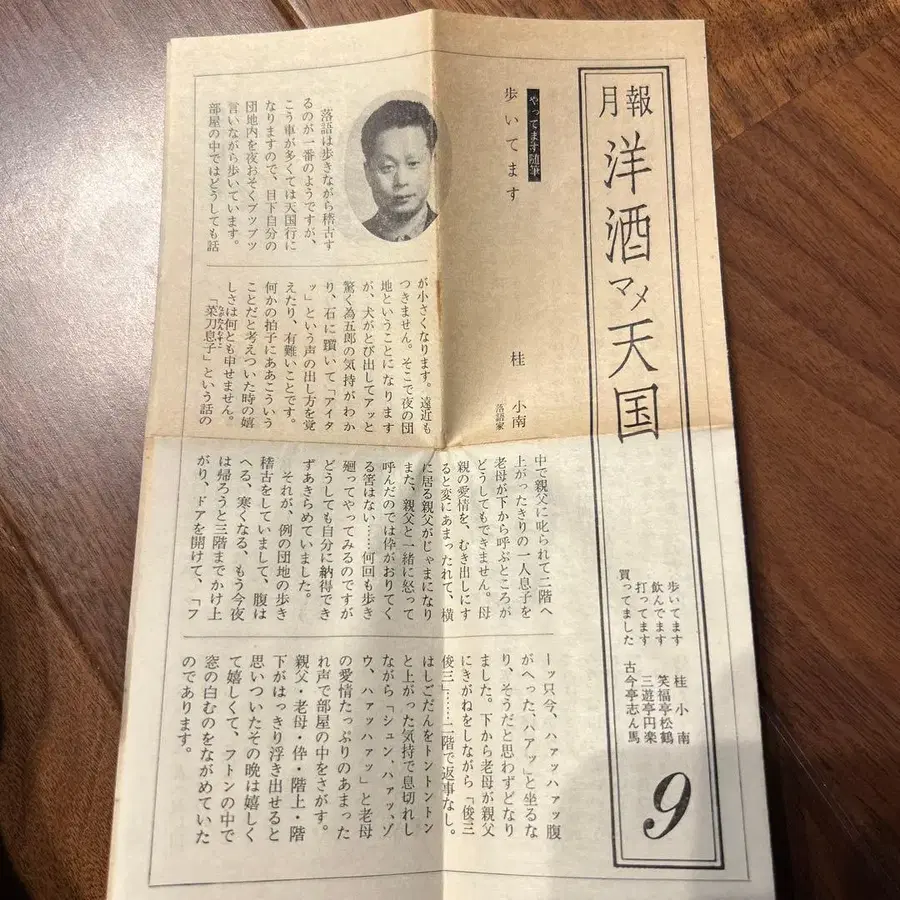 月報
洋酒マメ天国
歩いてます 桂小南
飲んでます 笑福亭松鶴
打ってます 三遊亭円楽
買ってました 古今亭志ん馬
9
やってます随筆
歩いてます
桂 小南
落語家
落語は歩きながら稽古す
るのが一番のようですが、
こう車が多くては天国行に
なりますので、目下自分の
団地内を夜おそくブツブツ
言いながら歩いています。
部屋の中ではどうしても話
が小さくなります。遠近も
つきません。そこで夜の団
地ということになります
が、犬がとび出してアッと
驚く為五郎の気持がわか
り、石に躓いて「アイタ
ッ」という声の出し方を覚
えたり、有難いことです。
何かの拍子にああこういう
ことだと考えついた時の嬉
しさは何とも申せません。
「菜刀息子」という話の
中で親父に叱られて二階へ
上がったきりの一人息子を
老母が下から呼ぶところが
どうしてもできません。母
親の愛情を、むき出しにす
ると変にあまったれて、横
に居る親父がじゃまになり
また、親父と一緒に怒って
呼んだのでは伜がおりてく
る筈はない……何回も歩き
廻ってやってみるのですが
どうしても自分に納得でき
ずあきらめていました。
それが、例の団地の歩き
稽古をしていまして、腹は
へる、寒くなる、もう今夜
は帰ろうと三階までかけ上
がり、ドアを開けて、「フ
ーッ只今、ハァッハァッ腹
がへった、ハアッ」と坐るな
り、そうだと思わずどなり
ました。下から老母が親父
にきがねをしながら「俊三
俊三」……二階で返事なし。
はしごだんをトントントン
と上がった気持で息切れし
ながら「シュン、ハァッ、ゾ
ウ、ハァッハァッ」と老母
の愛情たっぷりのあまった
れ声で部屋の中をさがす。
親父・老母・伜・階上・階
下がはっきり浮き出せると
思いついたその晩は嬉しく
て嬉しくて、フトンの中で
窓の白むのをながめていた
のであります。